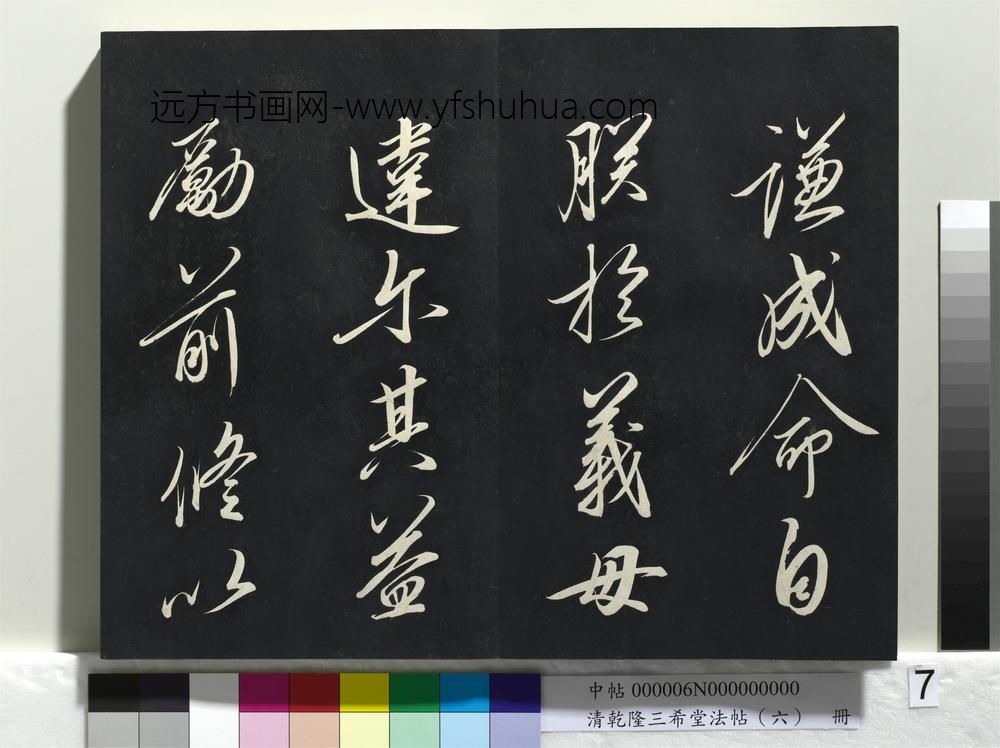 远方书画网-www.yfshuhua.com
谦成命自
朕於義毋
違尔其益
勵前修以
7
中帖 000006N000000000
清乾隆三希堂法帖（六） 冊